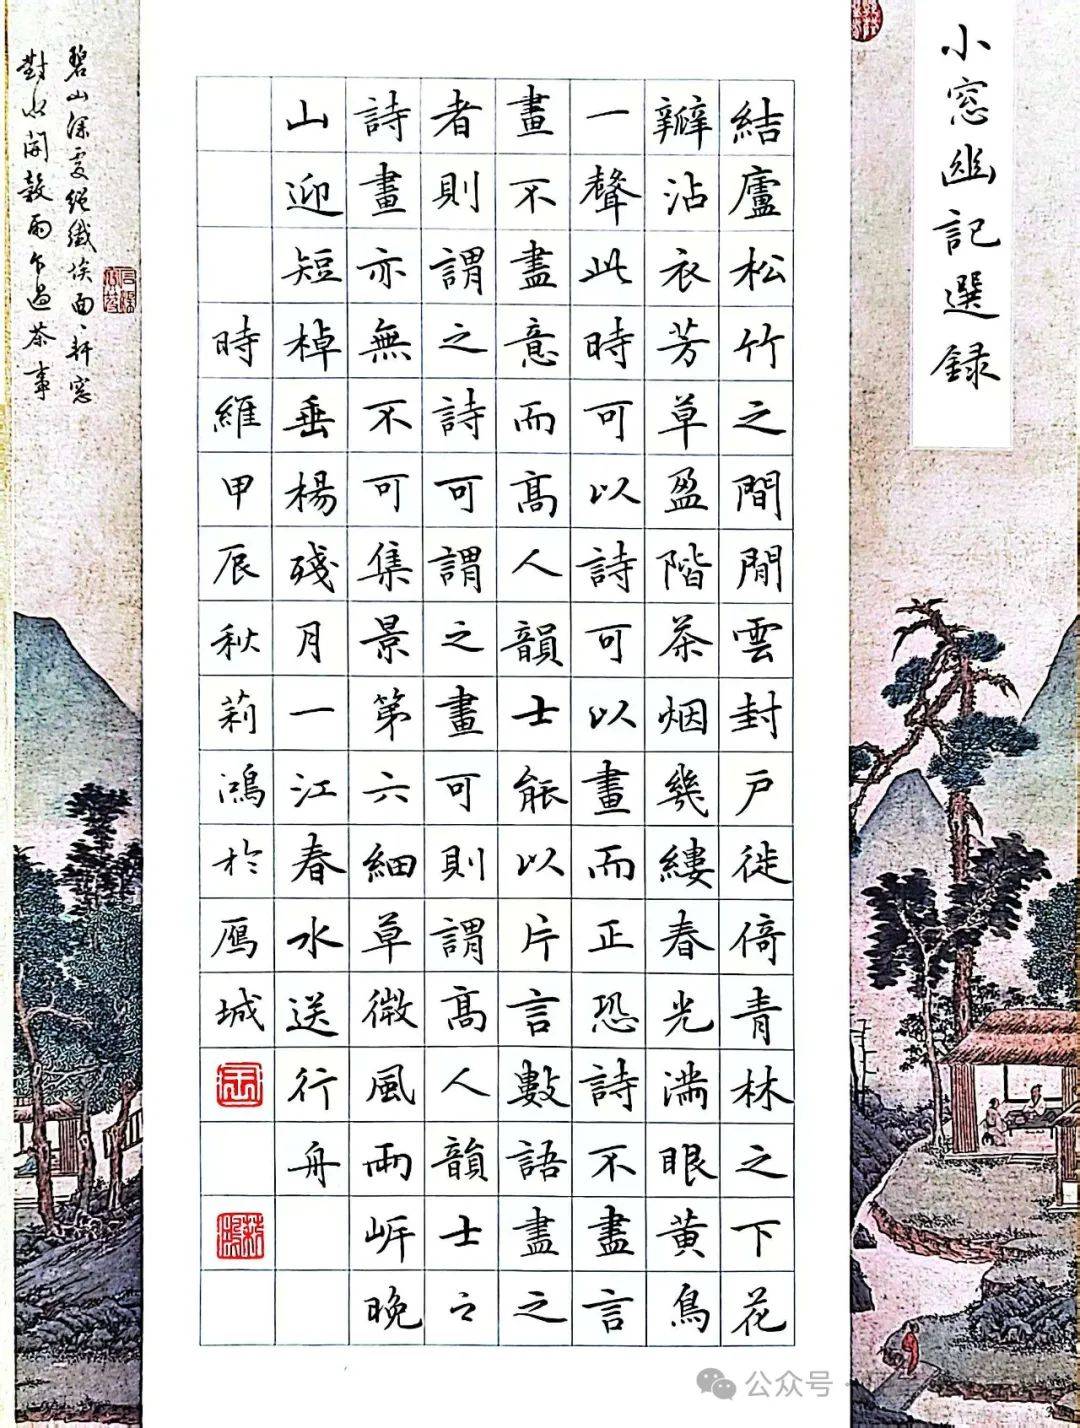 小窓幽記選録
結廬松竹之間閒雲封戶徙倚青林之下花
瓣沾衣芳草盈階茶烟幾縷春光滿眼黃鳥
一聲此時可以詩可以畫而正恐詩不盡言
畫不盡意而高人韻士能以片言數語盡之
者則謂之詩可謂之畫可則謂高人韻士之
詩畫亦無不可集景第六細草微風兩岸晚
山迎短棹垂楊殘月一江春水送行舟
時維甲辰秋莉鴻於鴈城
碧山深處絕纖埃面々軒窓
對水開穀雨乍過茶事
公众号 ·